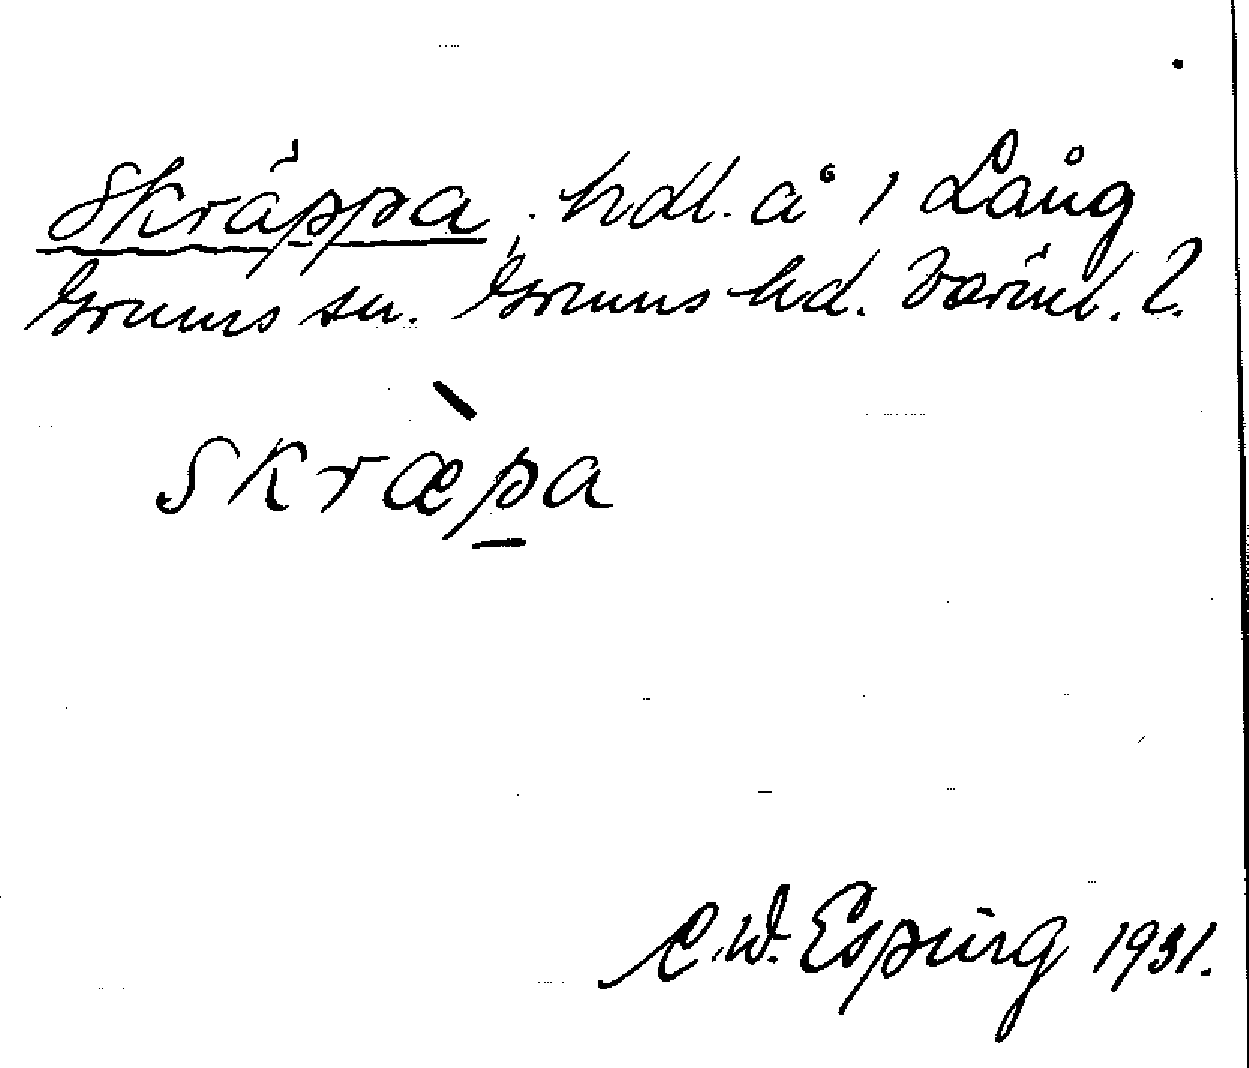 Skräppa, hdl. å 1 Lång
Grums sn. Grums hd. Värml. l.
skræpa
C.W. Esping 1931.